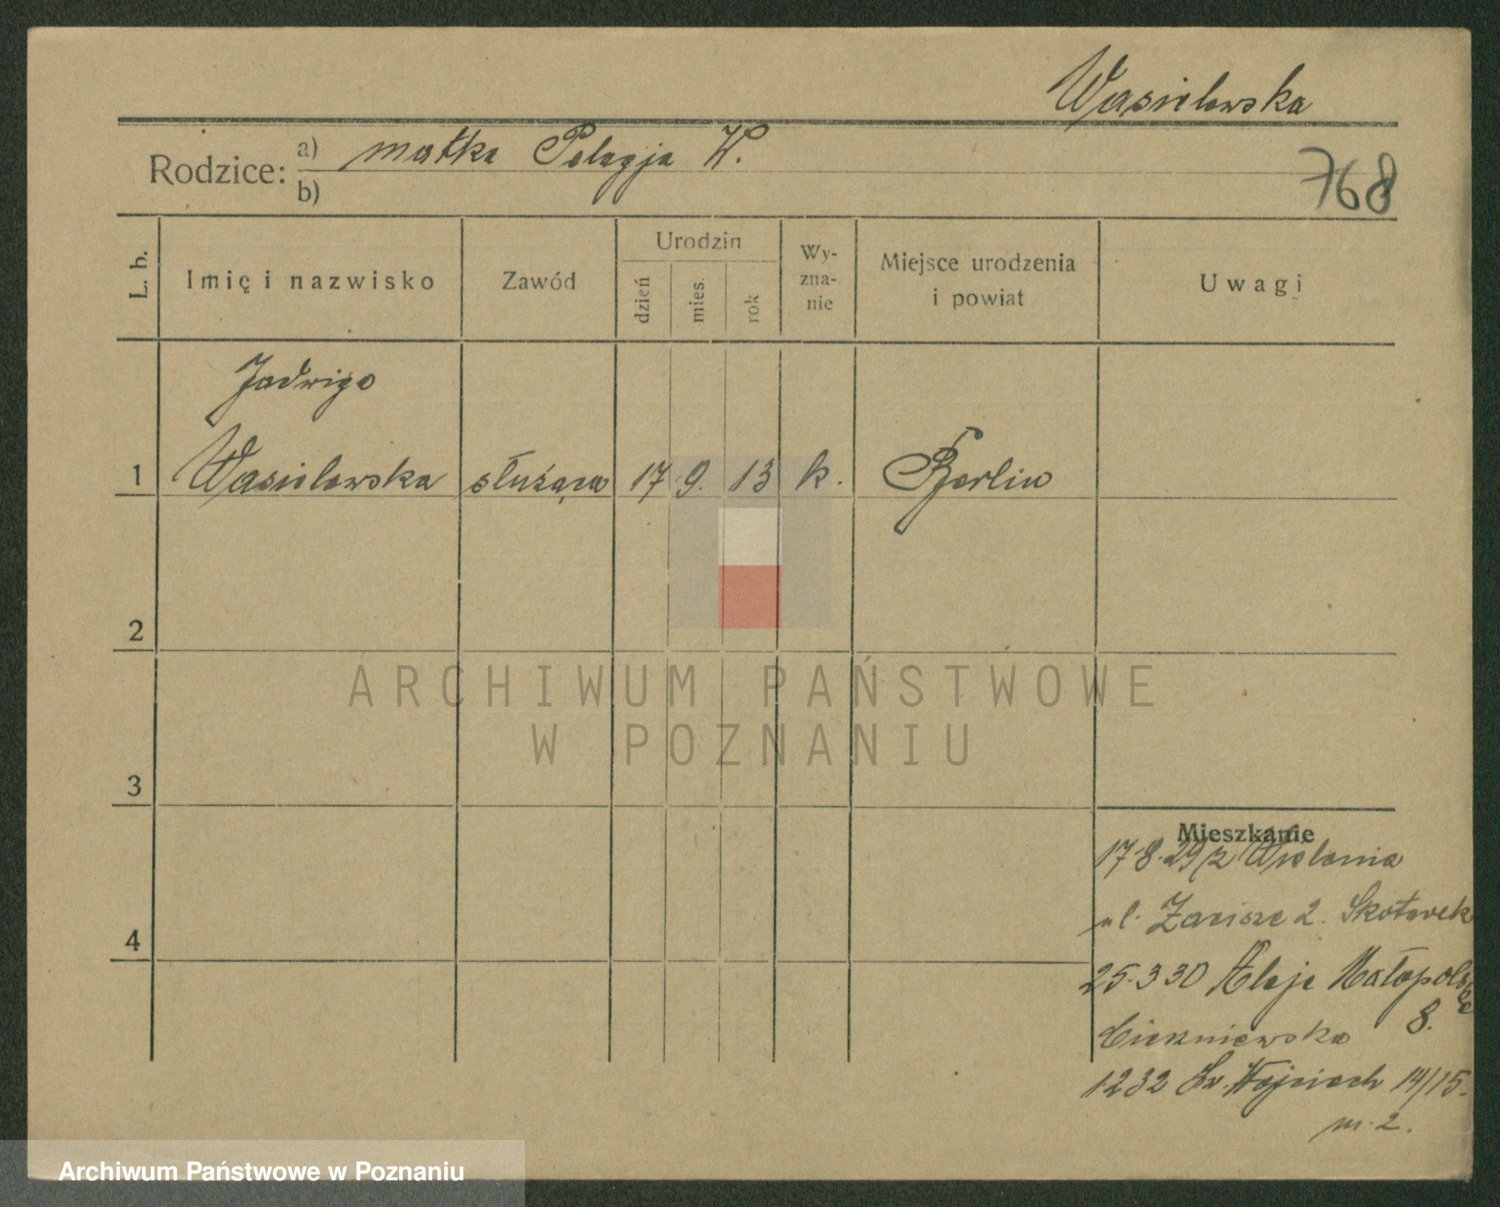 Wasielewska
Rodzice: a) matka Pelagja W.
b)
768
L. b.
Imię i nazwisko
Zawód
Urodzin
dzień
mies.
rok
Wy-
zna-
nie
Miejsce urodzenia
i powiat
Uwagi
Jadwiga
1 Wasielewska służąca 17 9. 13 k. Berlin
2
ARCHIWUM PAŃSTWOWE
W POZNANIU
3
Mieszkanie
17.8.29 z Wielenia
ul. Zacisze 2. Skotarek
4
25.3 30 Aleje Małopolska
8.
1232 Św. Wojciech 14/15.
m. 2.
Archiwum Państwowe w Poznaniu